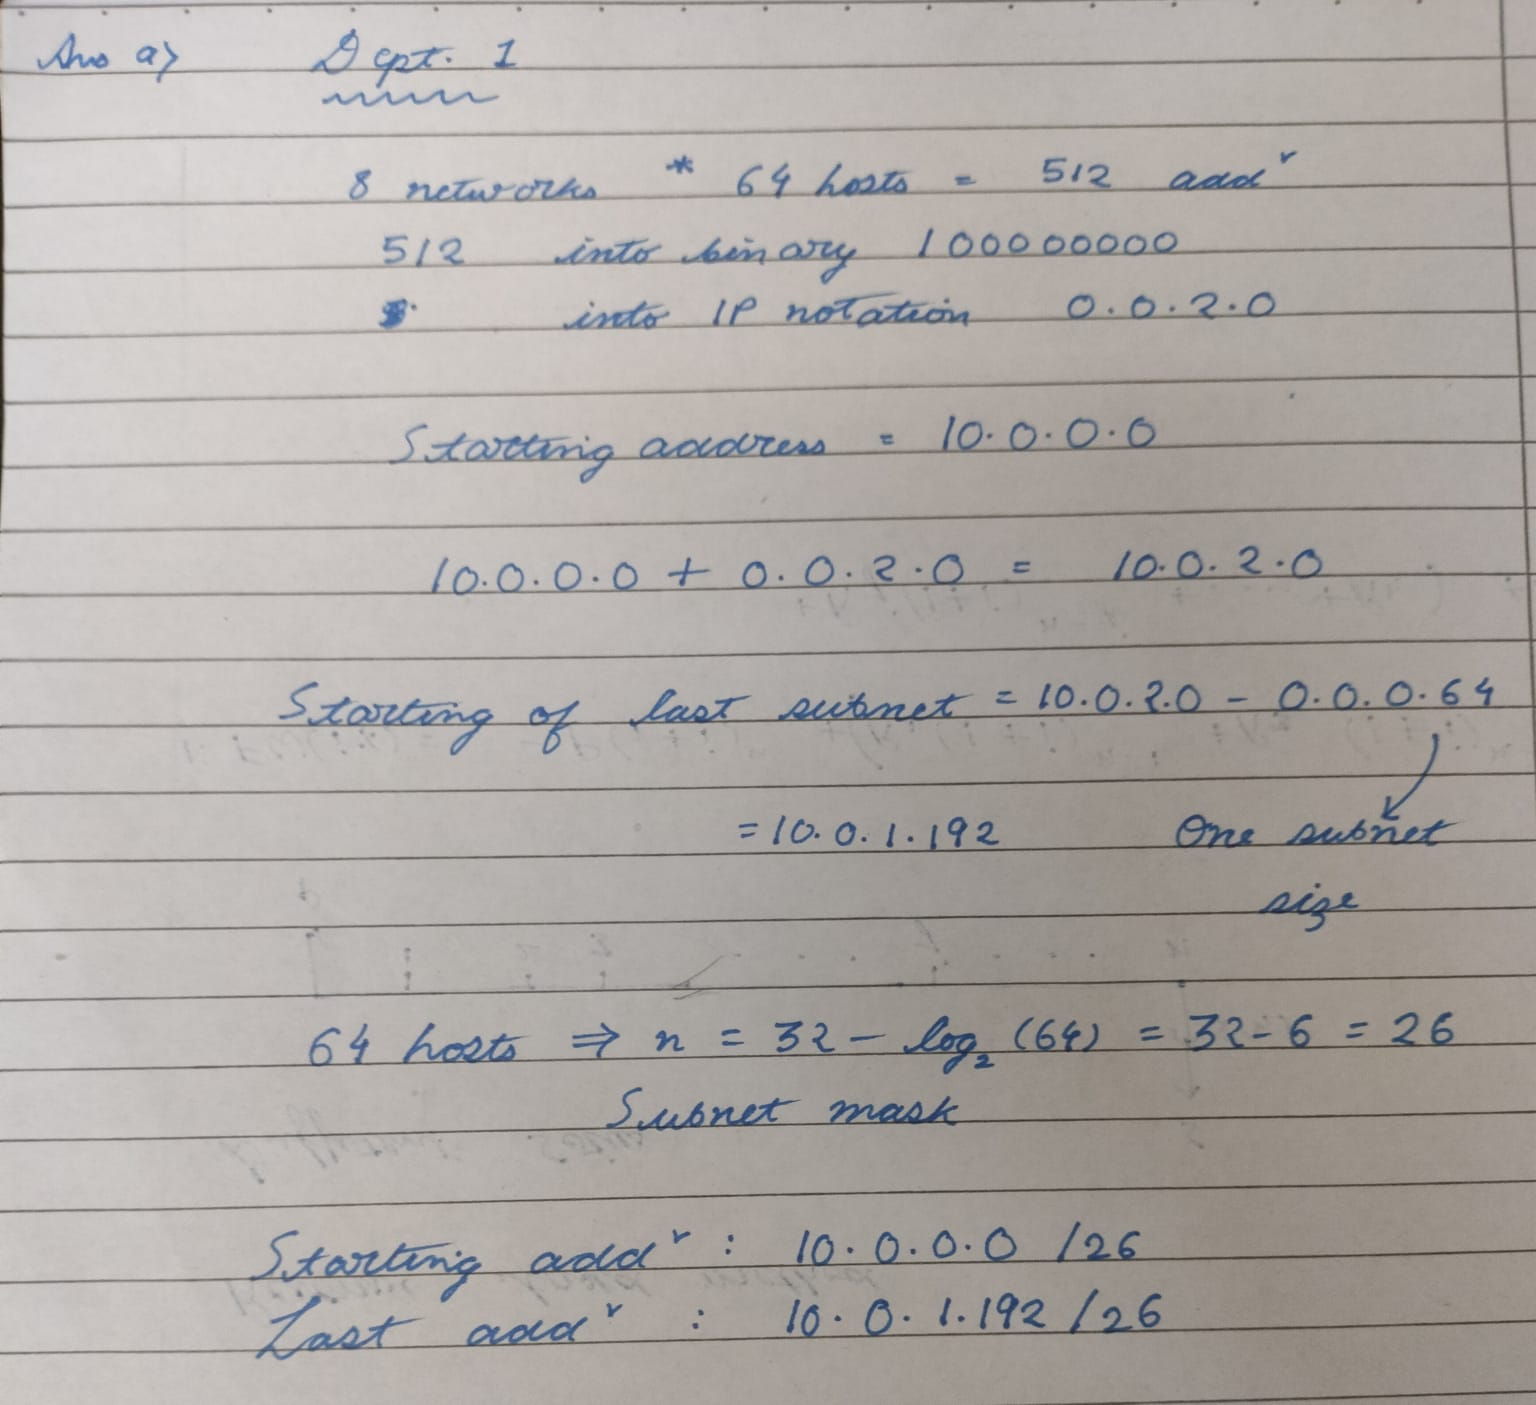 Ans a) Dept. 1
8 networks * 64 hosts = 512 addʳ
512 into binary 1000000000
into IP notation 0.0.2.0
Starting address = 10.0.0.0
10.0.0.0 + 0.0.2.0 = 10.0.2.0
Starting of last subnet = 10.0.2.0 - 0.0.0.64
= 10.0.1.192 One subnet
size
64 hosts ⇒ n = 32 - log₂ (64) = 32 - 6 = 26
Subnet mask
Starting addʳ : 10.0.0.0 /26
Last addʳ : 10.0.1.192 /26